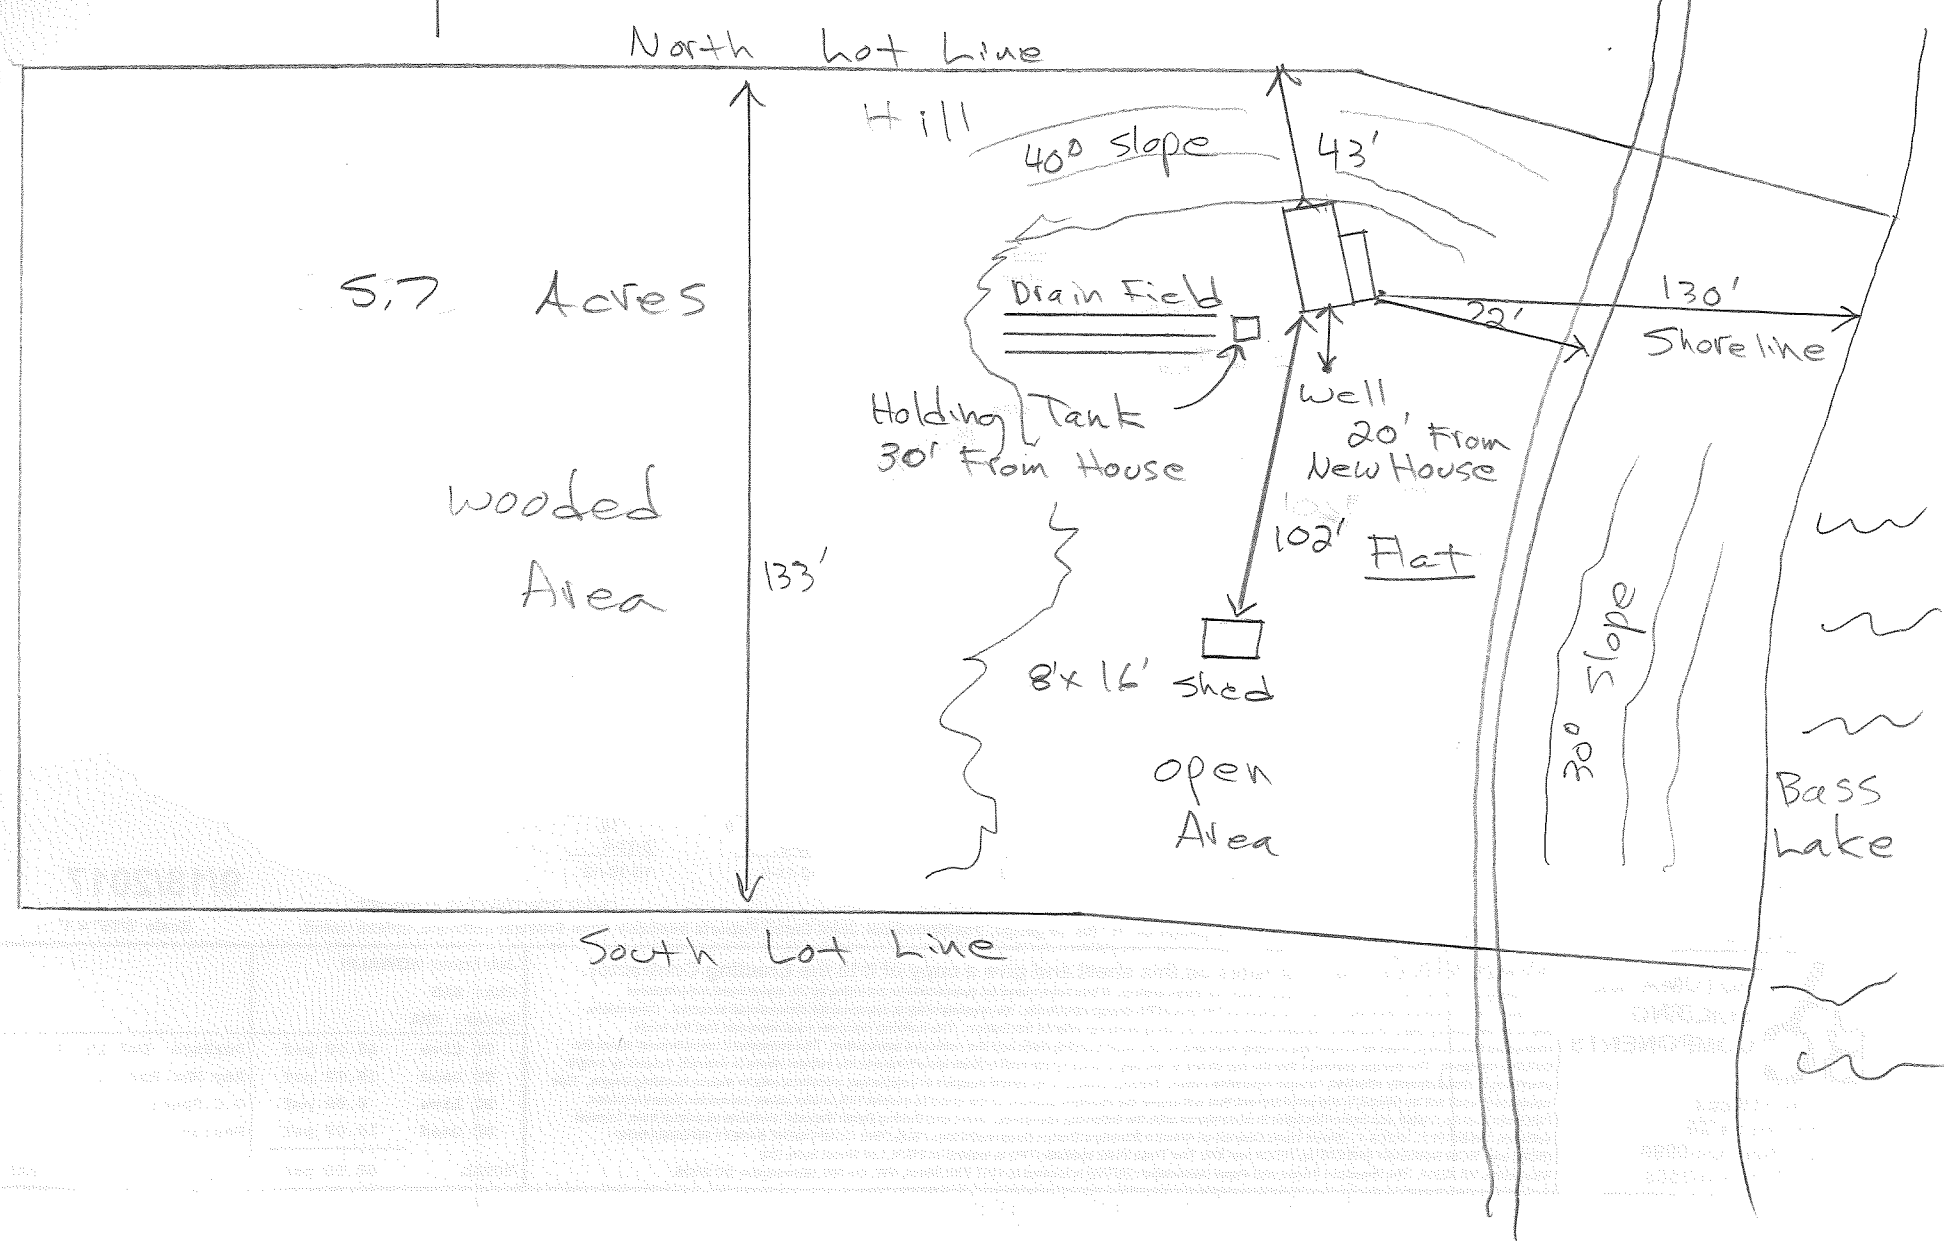 North Lot Line
Hill
40° Slope
43'
5.7 Acres
Drain Field
130'
Shoreline
Holding Tank
30' From House
Well
20' From
New House
Wooded
Area
133'
102'
Flat
30° Slope
8'x 16' Shed
Open
Area
Bass
Lake
South Lot Line